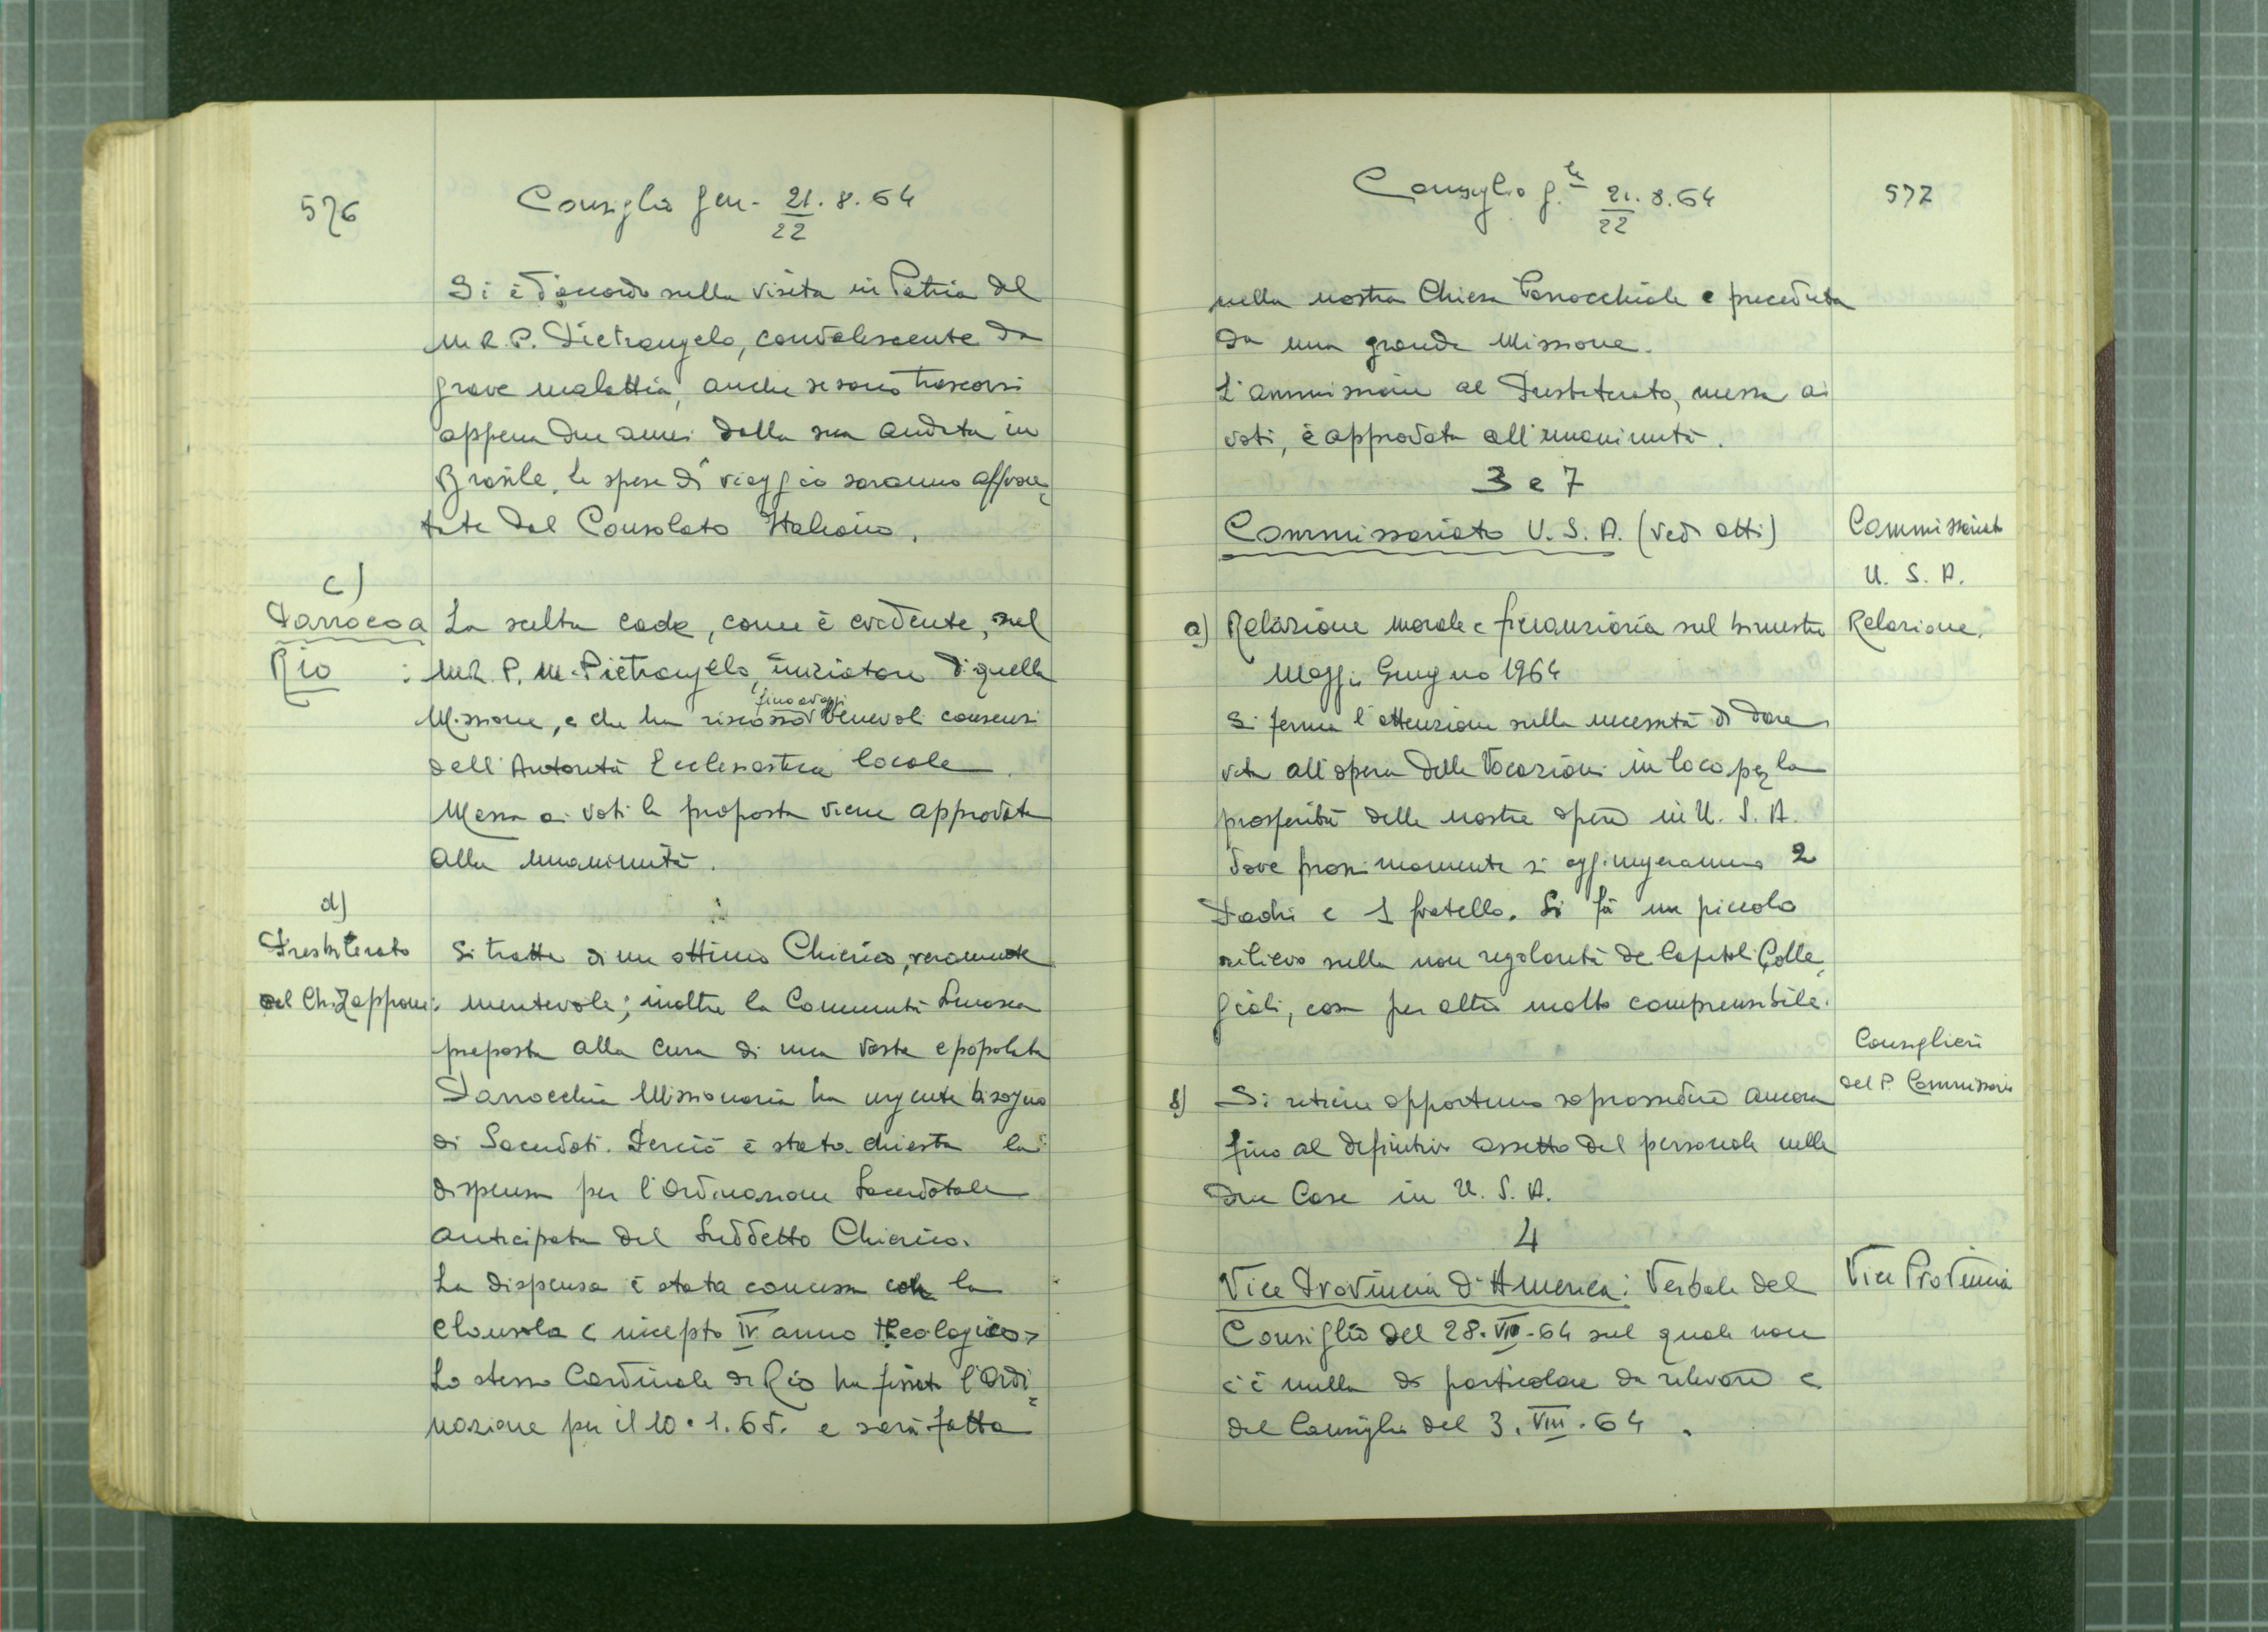 576
Consiglio Gen. 21.8.64
22
Si è d'accordo sulla visita in Patria del
M.R.P. Pietrangelo, convalescente da
grave malattia, anche se sono trascorsi
appena due anni dalla sua andata in
Brasile, le spese di viaggio saranno affron=
tate dal Consolato Italiano.
c)
Parroco a
Rio :
La scelta cade, come è evidente, sul
M.R.P. M. Pietrangelo, iniziatore di quella
fino ad oggi
Missione, e che ha riscosso benevoli consensi
dell'Autorità Ecclesiastica locale.
Messa ai voti la proposta viene approvata
alla unanimità.
d)
Presbiterato
del Ch. Zappone:
Si tratta di un ottimo Chierico, veramente
meritevole; inoltre la Comunità
preposta alla cura di una vasta e popolata
Parrocchia Missionaria ha urgente bisogno
di Sacerdoti. Perciò è stata chiesta la
dispensa per l'Ordinazione Sacerdotale
anticipata del Suddetto Chierico.
La dispensa è stata concessa con la
clausola < incepto IV anno theologico >
Lo stesso Cardinale di Rio ha fissato l'Ordi=
nazione per il 10.1.65. e sarà fatta
Consiglio g.le 21.8.64
22
577
nella nostra Chiesa Parrocchiale e preceduta
da una grande Missione.
L'ammissione al Presbiterato, messa ai
voti, è approvata all'unanimità.
3 e 7
Commissariato U.S.A. (vedi atti)
Commissariato
U.S.A.
a) Relazione morale e finanziaria sul bimestre
Relazione.
Maggio Giugno 1964
Si ferma l'attenzione sulla necessità di dare
vita all'opera delle Vocazioni in loco per la
prosperità delle nostre opere in U.S.A.
dove prossimamente si aggiungeranno 2
Padri e 1 fratello. Si fà un piccolo
rilievo sulla non regolarità de Capitoli Colle=
giali, cosa per altro molto comprensibile.
Consiglieri
del P. Commissario
b) Si ritiene opportuno soprassedere ancora
fino al definitivo assetto del personale nelle
due Case in U.S.A.
4
Vice Provincia d'America: Verbale del
Vice Provincia
Consiglio del 28.VII-64 sul quale non
c'è nulla di particolare da rilevare e
del Consiglio del 3.VIII.64.